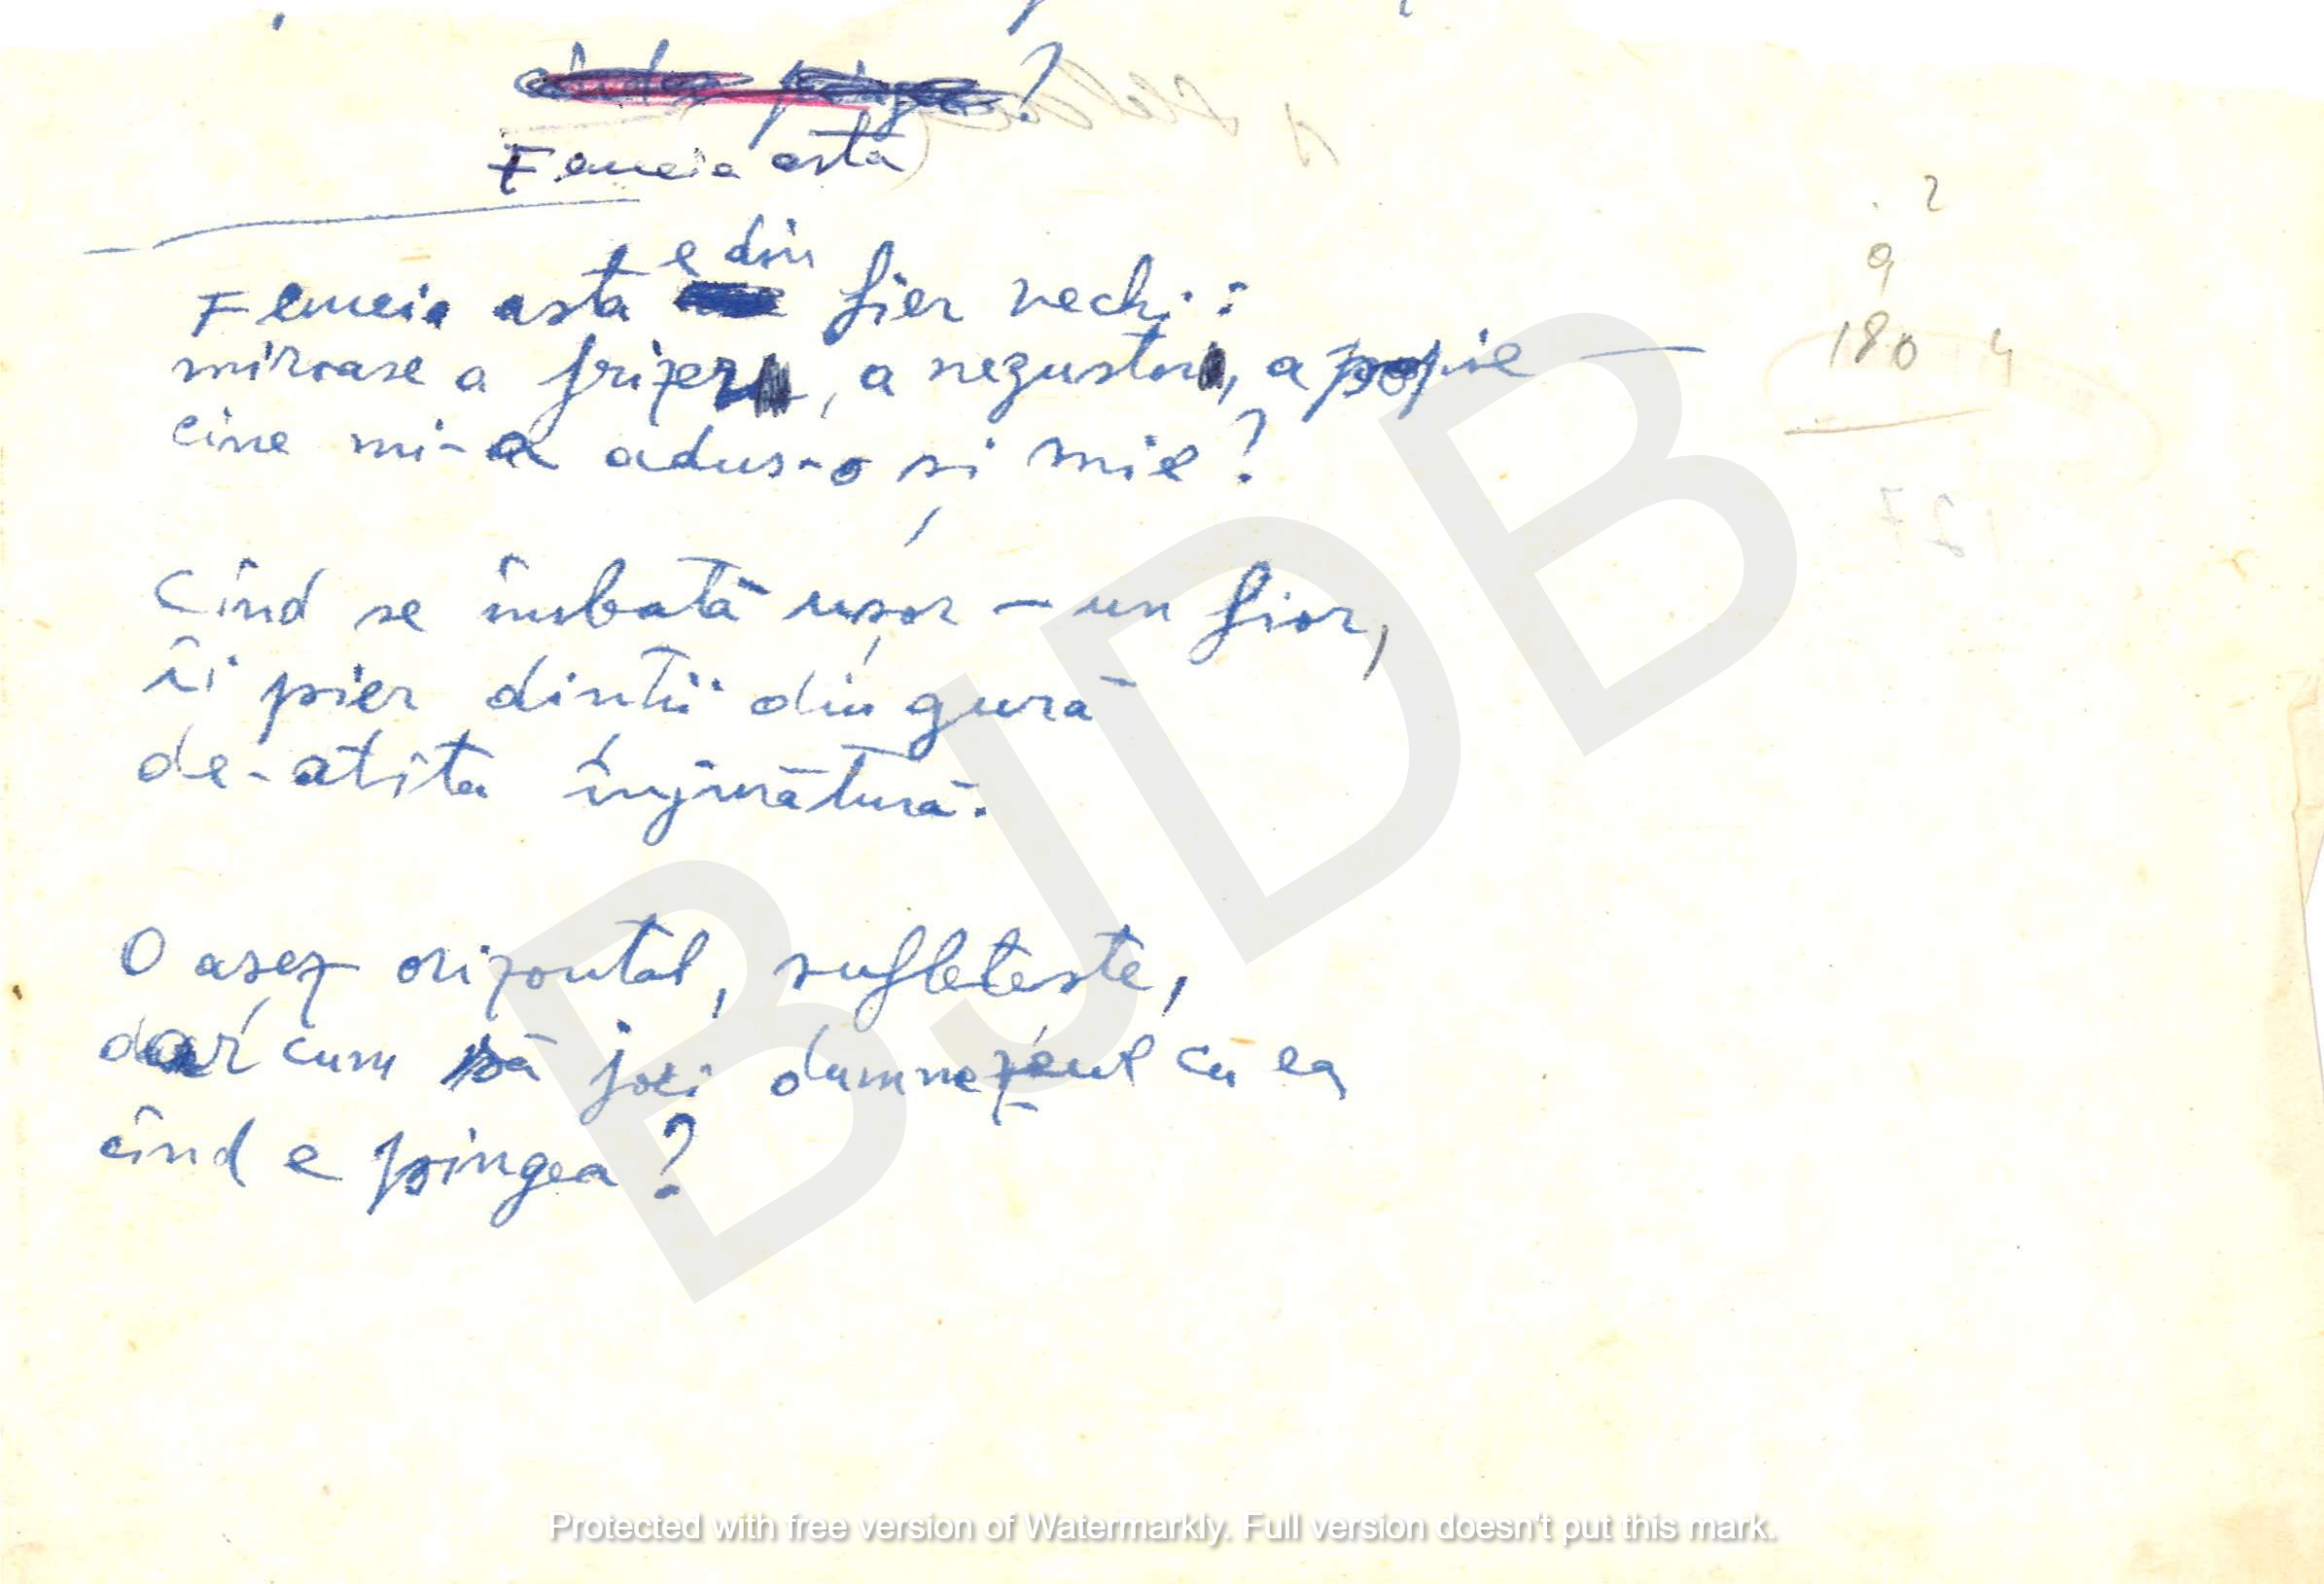 Femeia asta
Femeia asta e din fier vechi:
miroase a frizer, a negustor, a popie —
cine mi-a adus-o și mie?
Cînd se îmbată ușor — un fior,
îi pier dinții din gură
de-atîta înjurătură.
O așez orizontal, sufletește,
dar cum să joci dumnezeul cu ea
cînd e pingea?
2
9
180 4
127
BJDB
Protected with free version of Watermarkly. Full version doesn't put this mark.